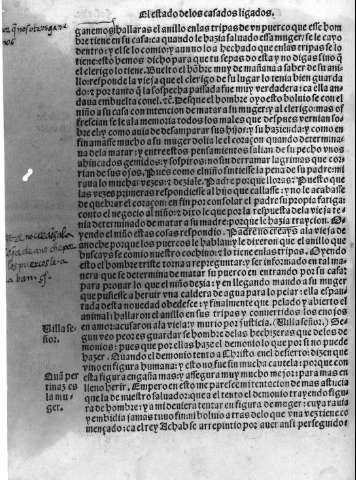 El estado delos casados ligados.
ganemos: hallaras el anillo enlas tripas de vn puerco que esse hom
bre tiene en su casa: ca quando le hazia salua do essa muger/ se le cayo
dentro: y el se lo comio: y aun no lo a hechado que enlas tripas se lo
tiene: esto hemos dicho para que tu sepas do esta y no digas sino q̃
el clerigo lo tiene. Buelto el hõbre muy de mañana a saber de su ani
llo: responde la vieja que el clerigo de su lugar lo tenia bien guarda
do: z por tanto q̃ la sospecha passada fue muy verdadera: ca ella an
daua embuelta conel. zc̃. Desque el hombre oyo esto boluio se con el
niño a su casa con intencion de matar a su muger: y al clerigo: mas of
frescian se le ala memoria todos los males que despues vernian so
bre el: y como auia de desamparar sus hijos: y su hazienda: y como en
fin amasse mucho a su muger dolia le el coraçon quando determina
ua dela matar: y entre estos pensamientos salian de su pecho vnos
ahincados gemidos: y sospiros: no sin derramar lagrimas que cor
rian de sus ojos. Pues como el niño sintiesse la pena de su padre: mi
raua lo muchas vezes: z dezia le. Padre porque lloras: Puesto que
las vezes primeras respondiesse al hijo que callasse: y no le acabasse
de quebrar el coraçon: en fin por consolar el padre su propia fatiga:
conto el negocio al niño: z dixo le que por la respuesta dela vieja te-
nia determinado de matar a su madre: porque le hazia traycion. O
yendo el niño estas cosas respondio. Padre no creays ala vieja: de
anoche porque los puercos le hablan: y le dixeron que el anillo que
buscays se comio nuestro cochino: z lo tiene enlas tripas. Oyendo
esto el hombre triste torna a repreguntar: y ser informado en tal ma
nera que se determina de matar su puerco en entrando por su casa:
para prouar lo que el niño dezia: y en llegando mando a su muger
que pusiesse a heruir vna caldera de agua para lo pelar: ella espan-
tada desta nouedad obedesce: z finalmente que pelado y abierto el
animal: hallaron el anillo en sus tripas y conuertidos los enojos
en amor: acusaron ala vieja: y murio por justicia. (Villaseñor.) Se
gun veo peor es guardar se hombre delas hechizeras que delos de
monios: pues que por ellas haze el demonio lo que por si no puede
hazer. Quando el demonio tento a Christo enel desierto: dizen que
vino en figura humana: y esto no fue su mucha cautela: porque con
esta figura engaña mas: y assegura muy mucho mejor: para mas en
lleno herir. Empero en esto me paresce mi tentacion de mas astucia
que la de nuestro saluador: que a el tento el demonio trayendo figu
ra de hombre: y a mi deuiera tentar en figura de muger: cuya rauia
y embidia jamas tuuo fin: ni boluio atras delo que vna vez tiene co
mençado: ca el rey Achab se arrepintio por auer ansi perseguido:
Villa se-
ñor.
Quã per
tinaz es
la mu-
ger.